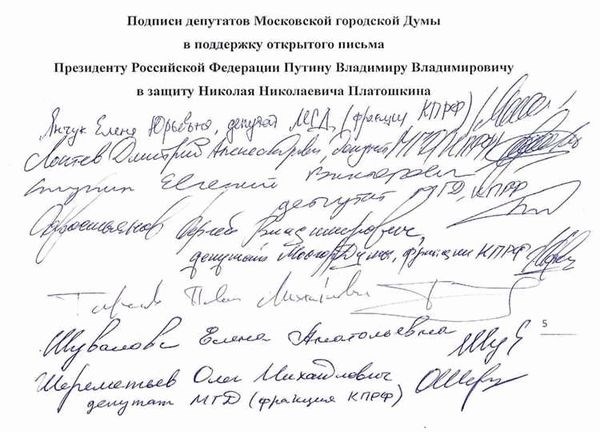 Подписи депутатов Московской городской Думы
в поддержку открытого письма
Президенту Российской Федерации Путину Владимиру Владимировичу
в защиту Николая Николаевича Платошкина
Янчук Елена Юрьевна, депутат МГД (фракции КПРФ)
Локтев Дмитрий Александрович, депутат МГД КПРФ
Ступин Евгений Викторович
депутат МГД, КПРФ
Савостьянов Сергей Владимирович,
депутат МосгорДумы, фракции КПРФ
Тарасов Павел Михайлович
Шувалова Елена Анатольевна
5
Шереметьев Олег Михайлович
депутат МГД (фракция КПРФ)